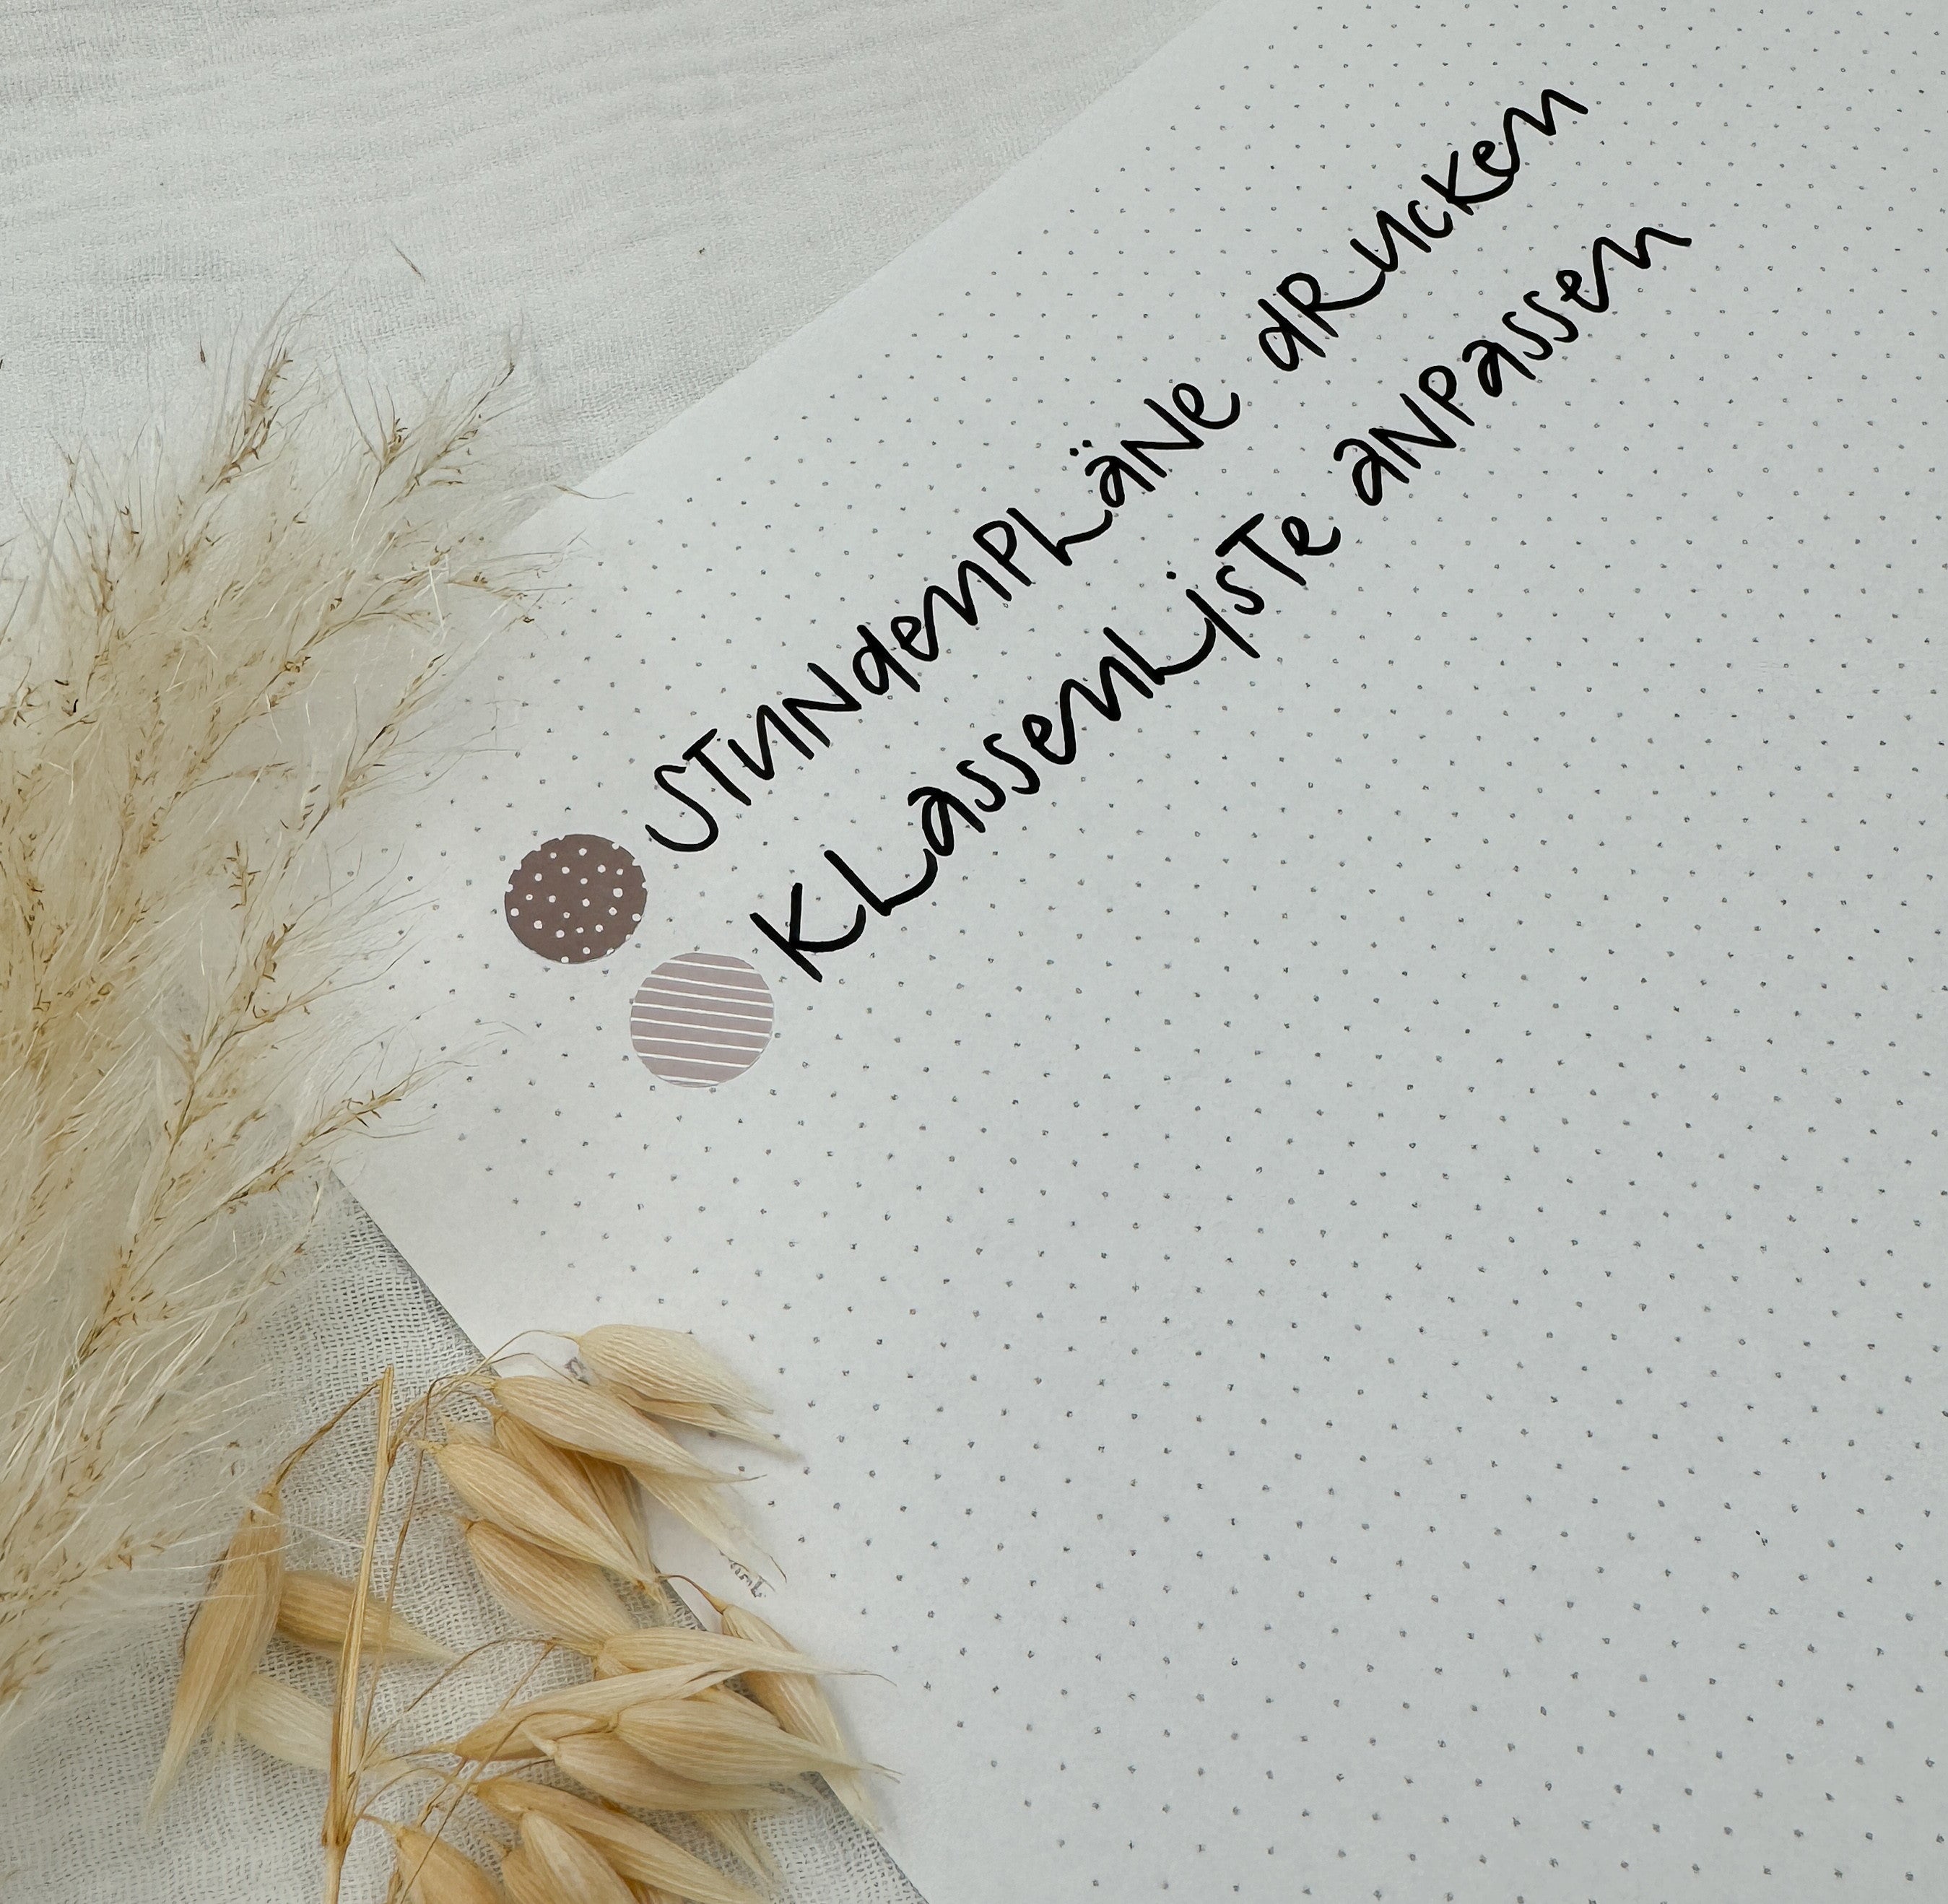 Stundenpläne drucken
Klassenliste anpassen